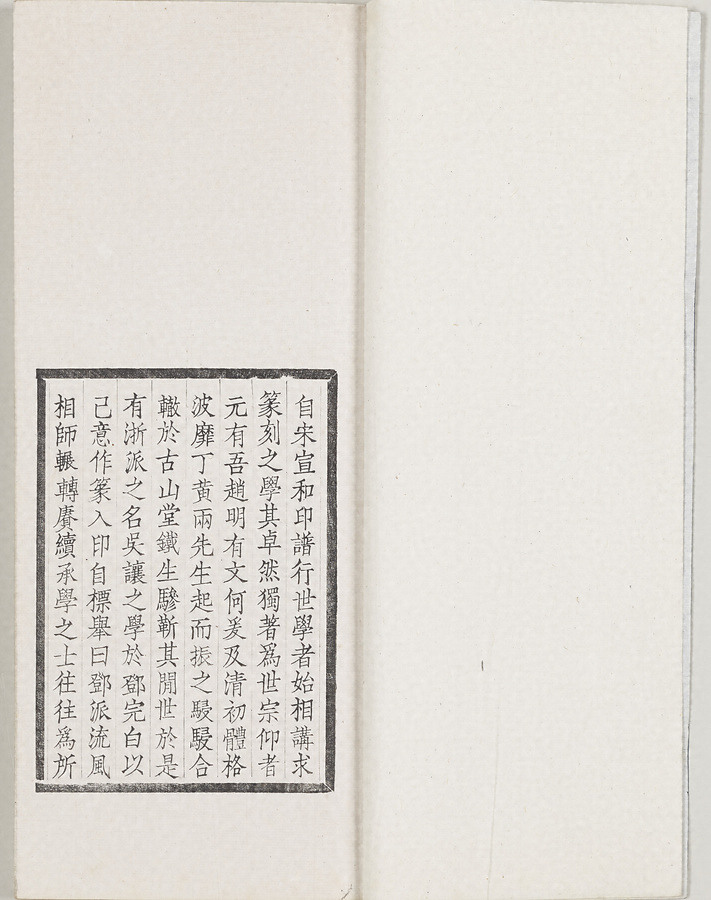 自宋宣和印譜行世學者始相講求
篆刻之學其卓然獨著爲世宗仰者
元有吾趙明有文何爰及清初體格
波靡丁黃兩先生起而振之駸駸合
轍於古山堂鐵生驂靳其閒世於是
有浙派之名吳讓之學於鄧完白以
己意作篆入印自標舉曰鄧派流風
相師輾轉賡續承學之士往往爲所